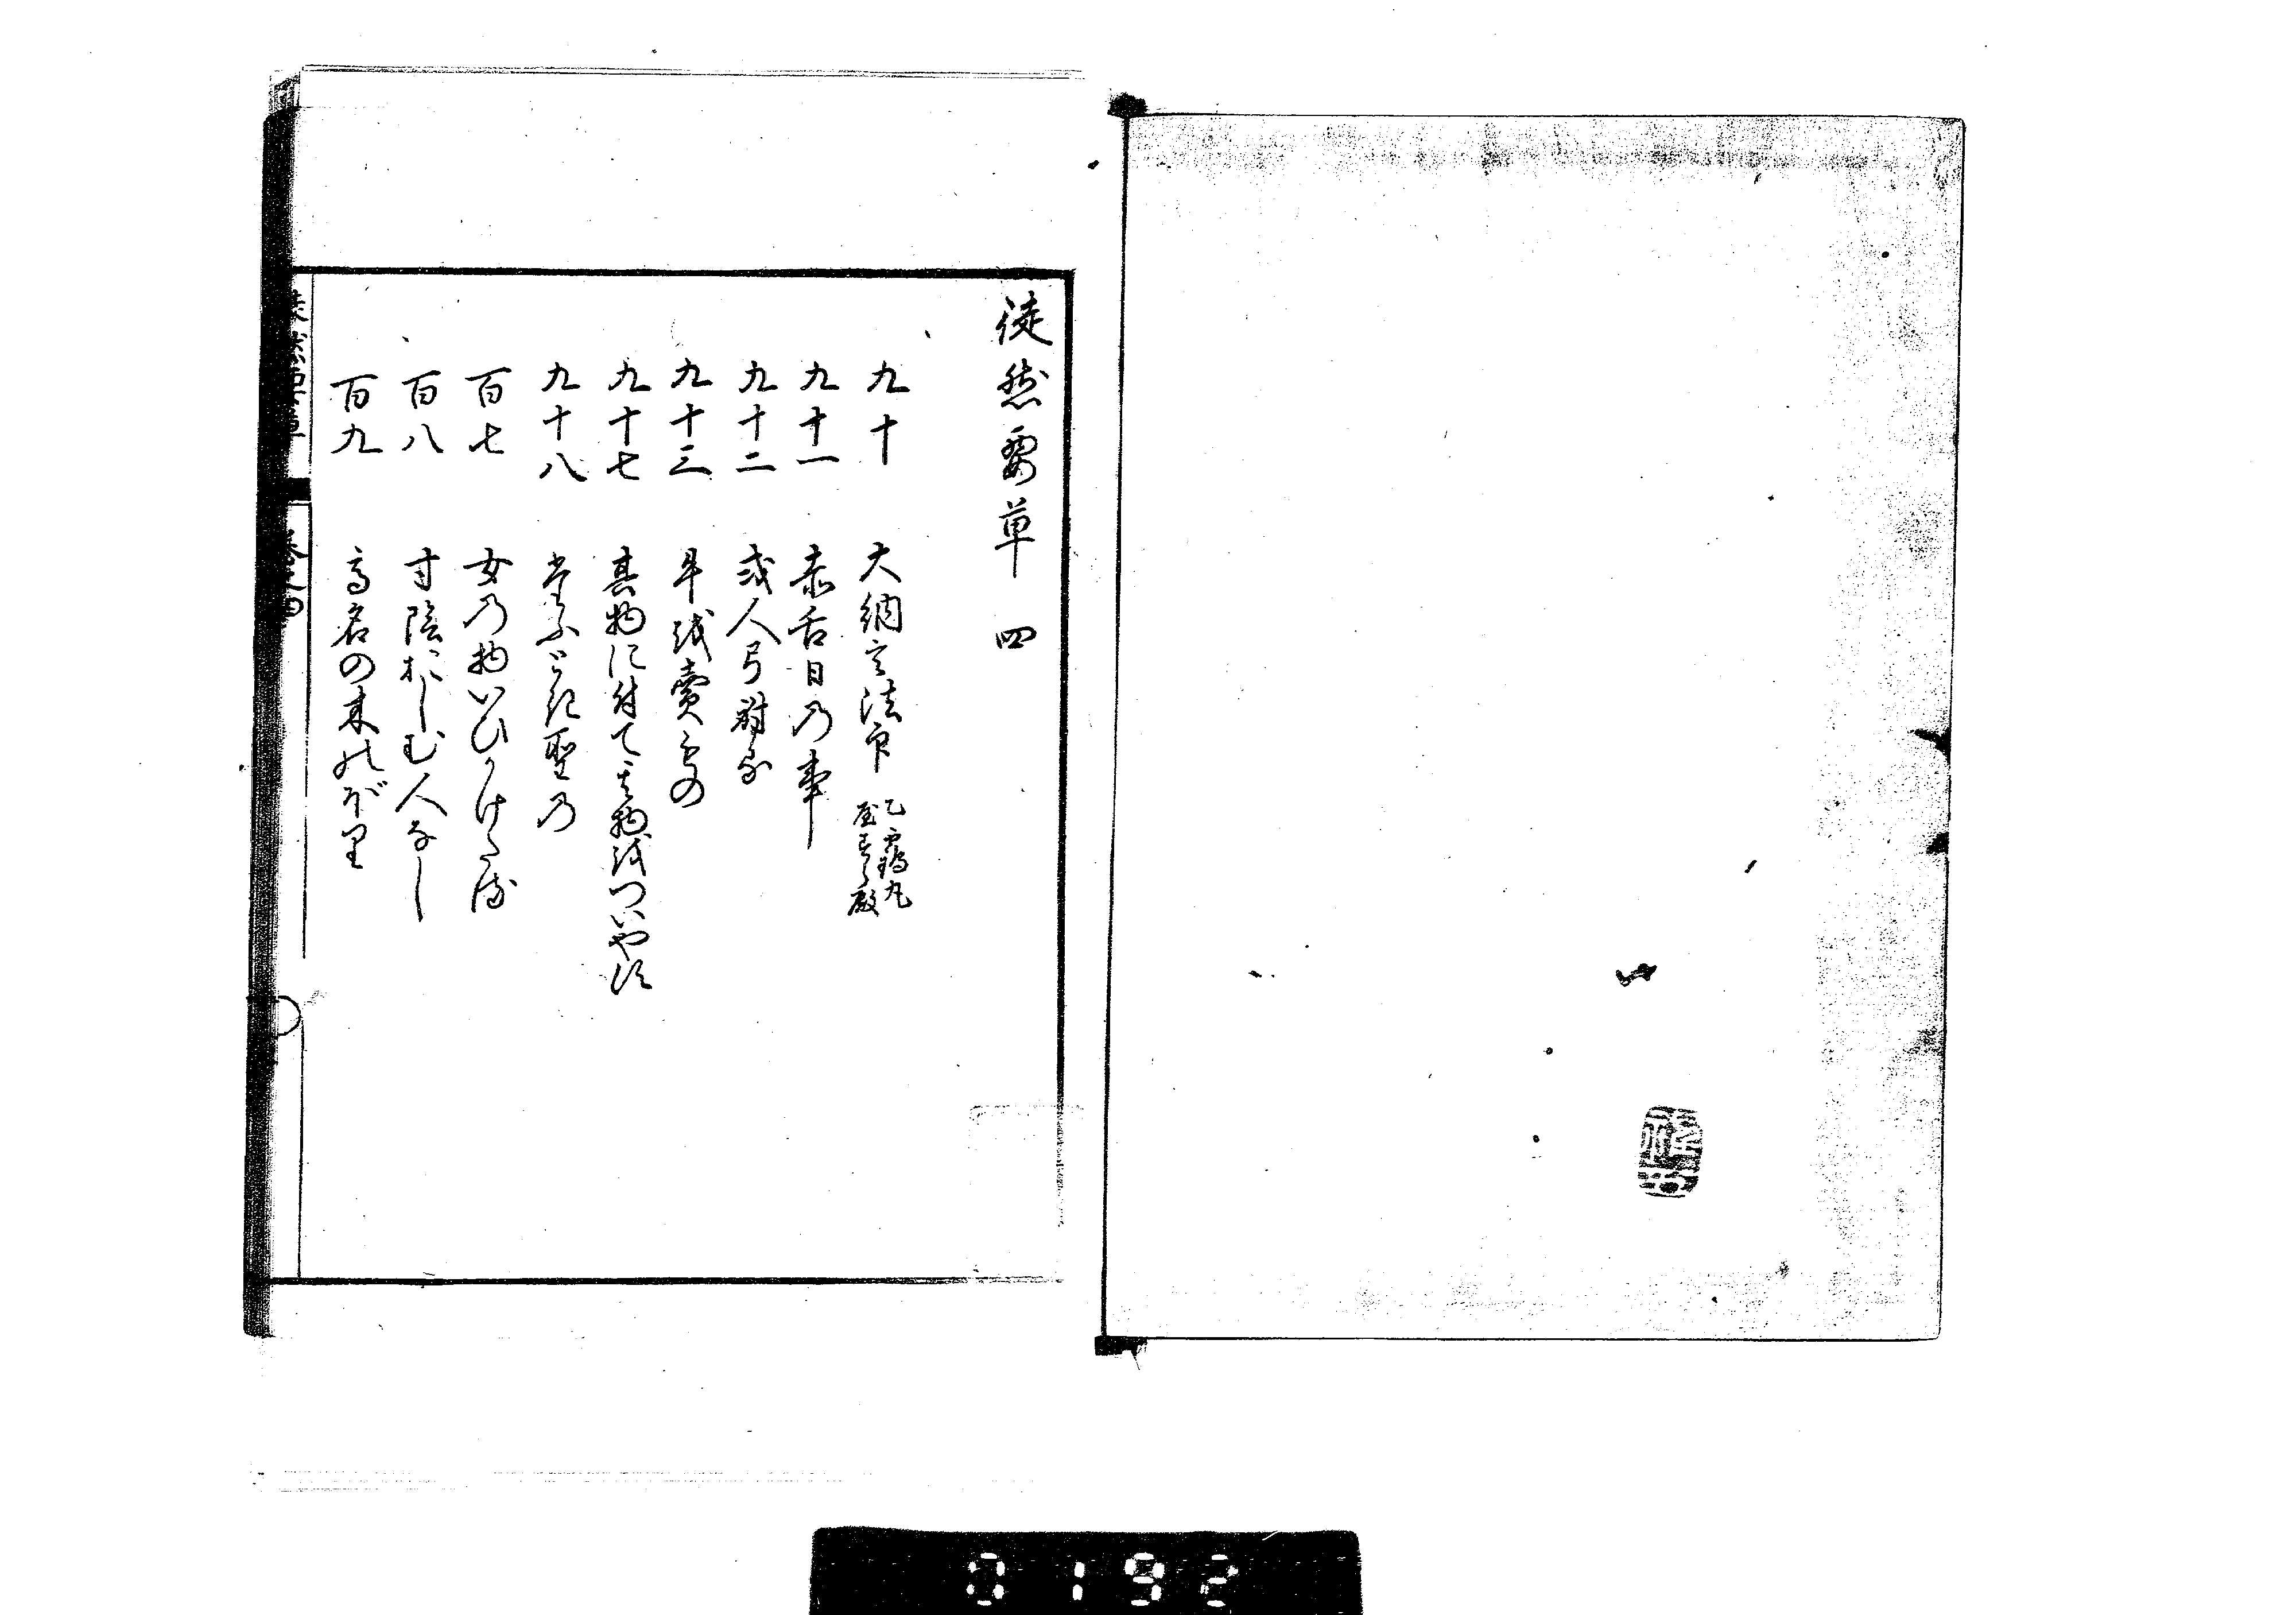 徒然要草 四
九十 大納言法印 乙靏丸
屋すら殿
九十一 赤舌日乃事
九十二 或人弓射る
九十三 牛越賣もの
九十七 其物に付て其物越つひやす
九十八 尊ふとき聖乃
百七 女乃物いひかけたる
百八 寸陰おしむ人なし
百九 高名の木のぼり
徒然要草 巻之四
0192